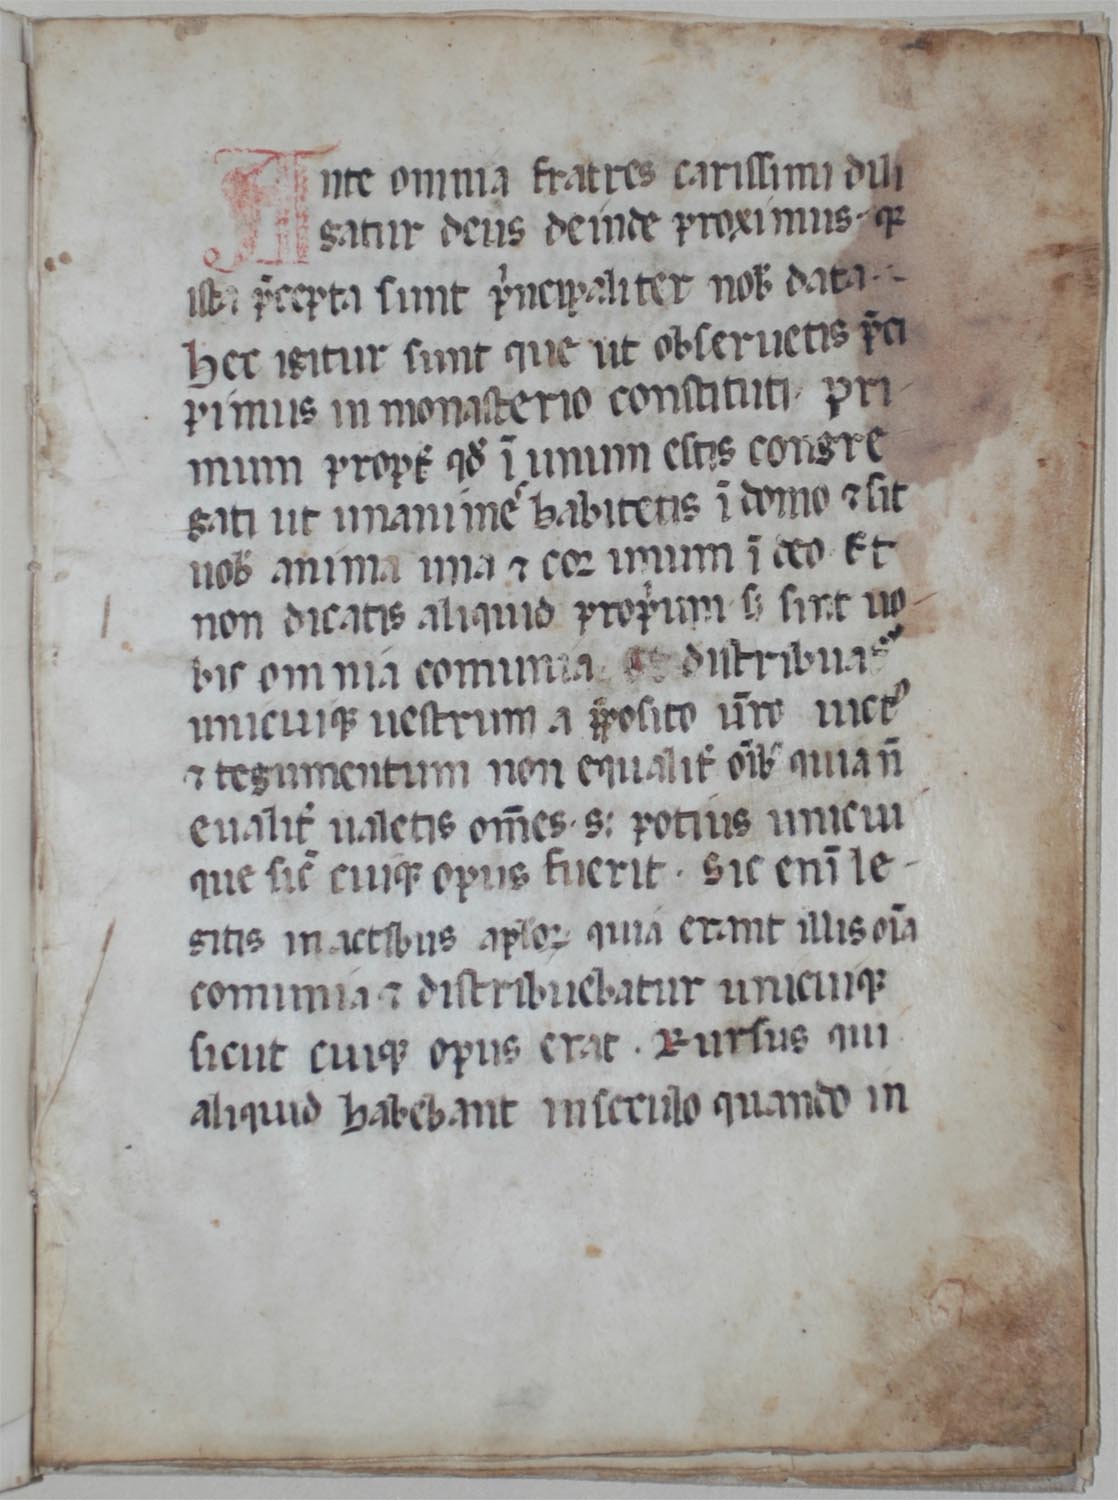 Ante omnia fratres carissimi dili
gatur deus deinde proximus· qꝛ
ista p̄cepta sunt pⁱncipaliter nob̓ data·-
hec igitur sunt que ut obseruetis p̄ci
pimus in monasterio constituti· pri
mum propt̓ qđ ī unum estis congre
gati ut unanimes habitetis ī domo ⁊ sit
uob̓ anima una ⁊ coꝛ unum ī deo· Et
non dicatis aliquid propⁱum s; sint uo
bis omnia comunia· Et distribuat̉
unicuiqꝫ uestrum a p̄posito ūro uictꝰ
⁊ tegumentum non equalit̓ oīb; quia n̄
eualit̓ ualetis om̄es· s; potius unicui
que sic̄ cuiqꝫ opus fuerit· Sic enī le-
gitis in actibus apl̓oꝝ quia erant illis oīa
comunia ⁊ distribuebatur unicuiqꝫ
sicut cuiqꝫ opus erat· Rursus qui
aliquid habebant in seculo quando in